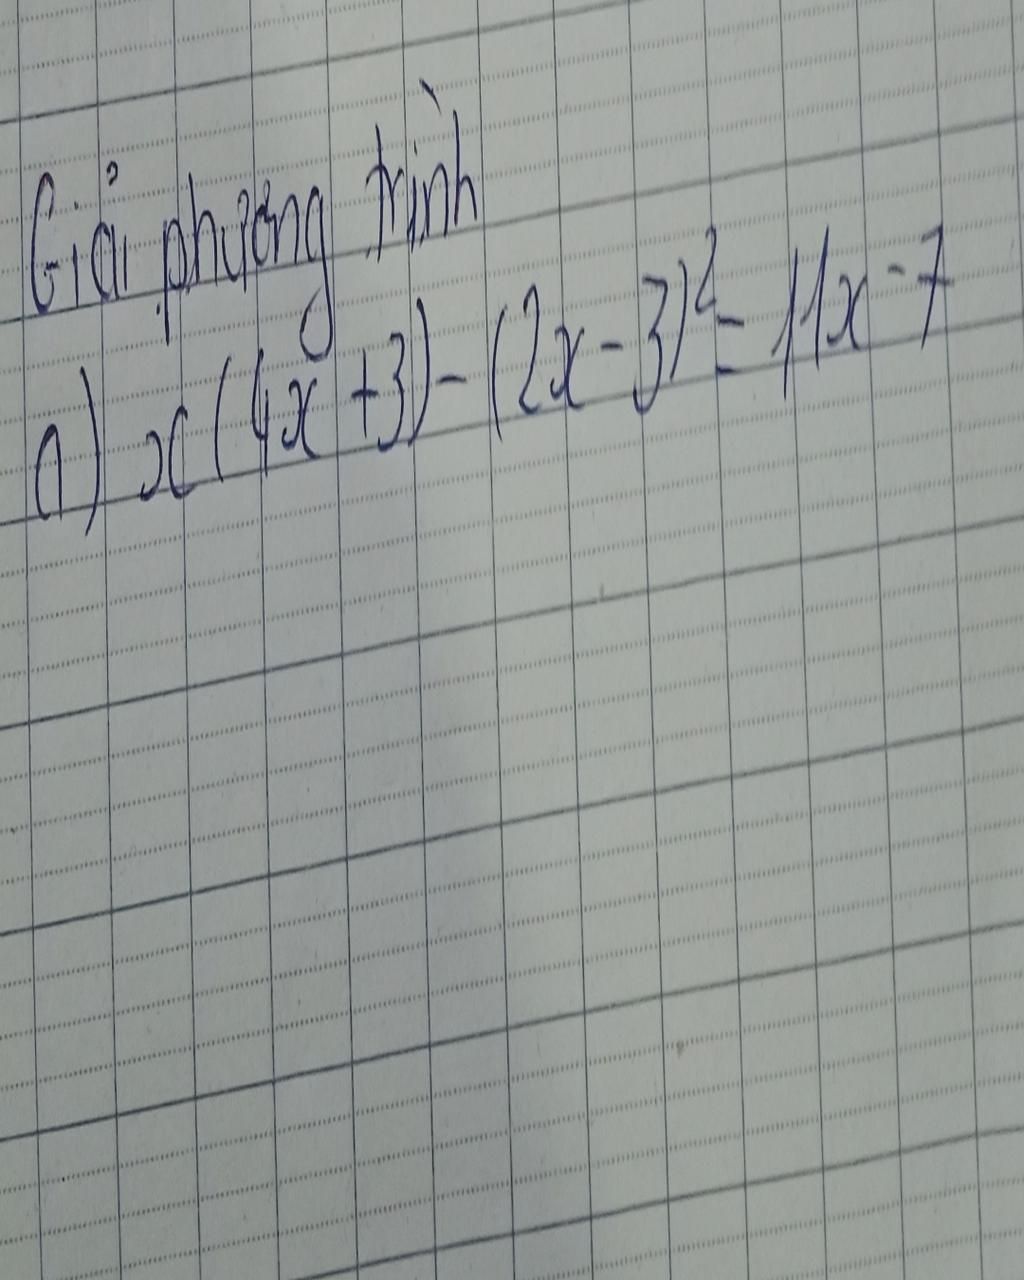 Giải phương trình
a) x(4x+3)-(2x-3)²=11x-7